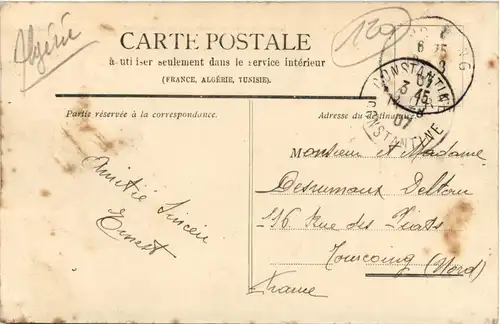 Algérie
120
CARTE POSTALE
à utiliser seulement dans le service intérieur
(FRANCE, ALGÉRIE, TUNISIE).
CONSTANTINE
3 45
07
CONSTANTINE
Partie réservée à la correspondance.
Adresse du destinataire.
Amitié Sincère
Ernest
Monsieur et Madame
Desrumaux Deltour
116 Rue des Piats
Tourcoing (Nord)
France